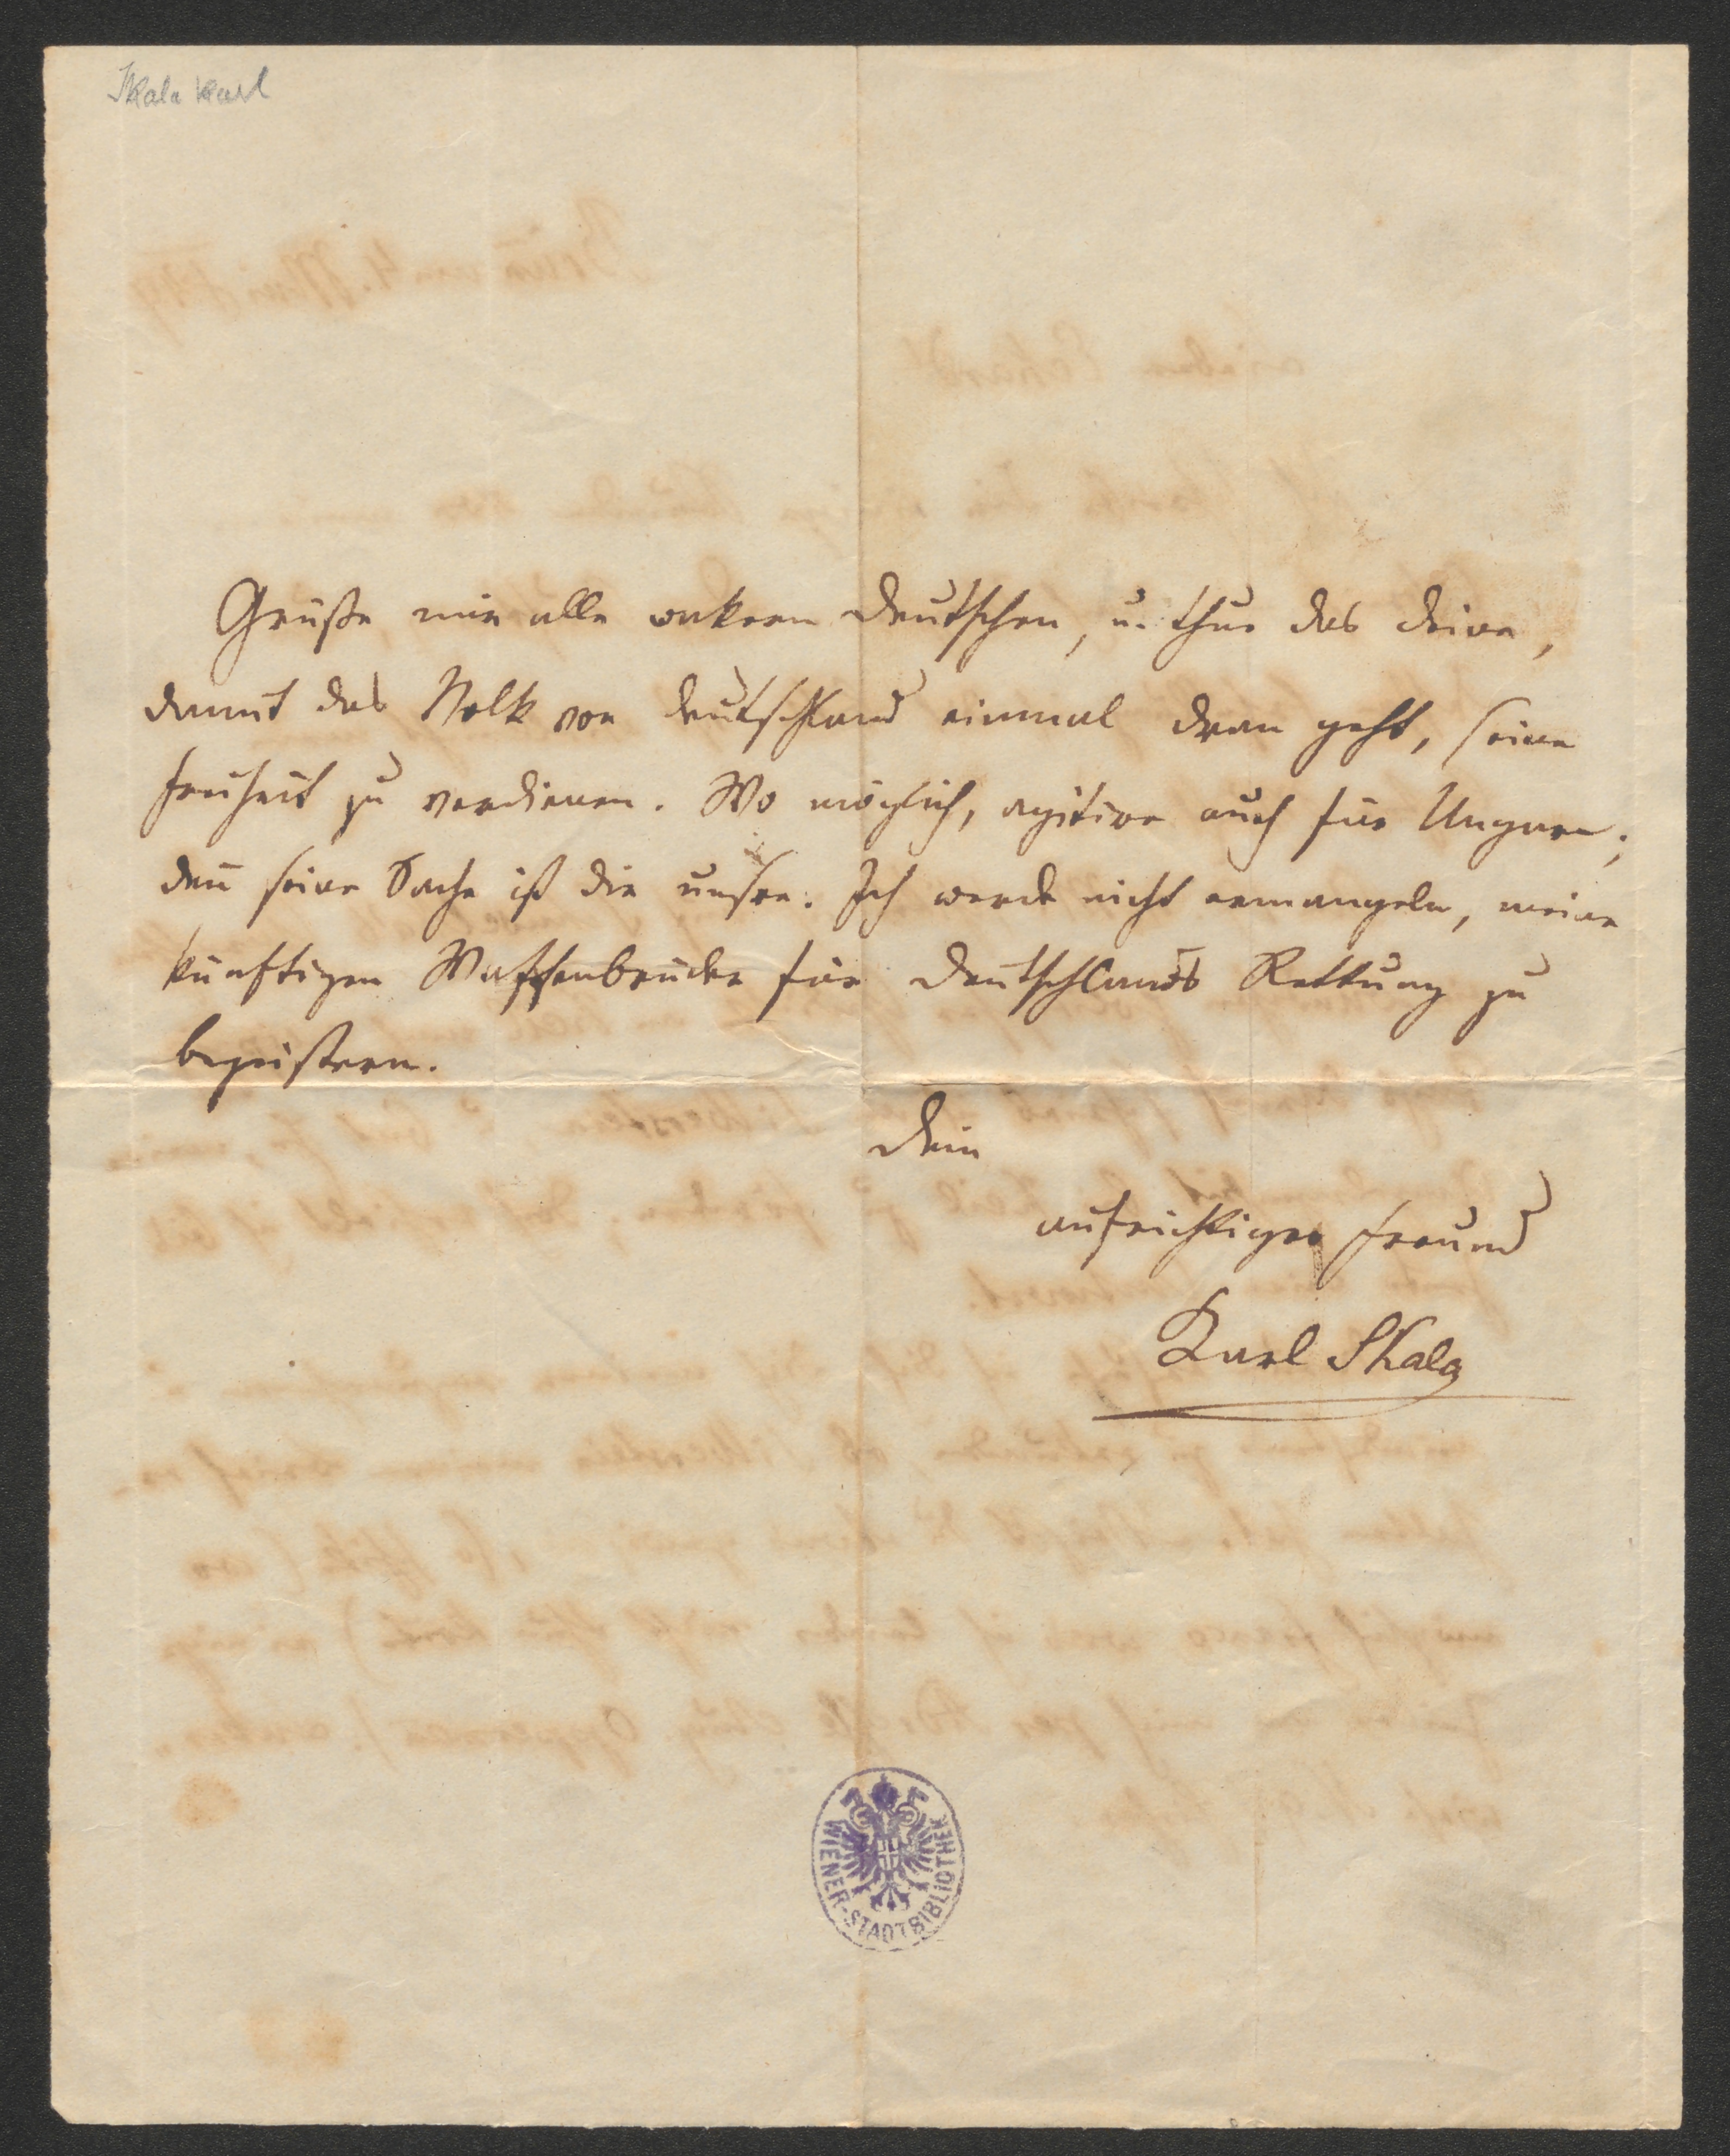 Skala Karl
Grüße mir alle wakern Deutschen, u. thue das deine,
damit das Volk von Deutschland einmal dran geht, seine
Freiheit zu verdienen. Wo möglich, agitire auch für Ungarn;
deñ seine Sache ist die unsre. Ich werde nicht ermangeln, meine
künftigen Waffenbrüder für Deutschlands Rettung zu
begeistern.
Dein
aufrichtiger Freund
Karl Skala
WIENER-STADTBIBLIOTHEK